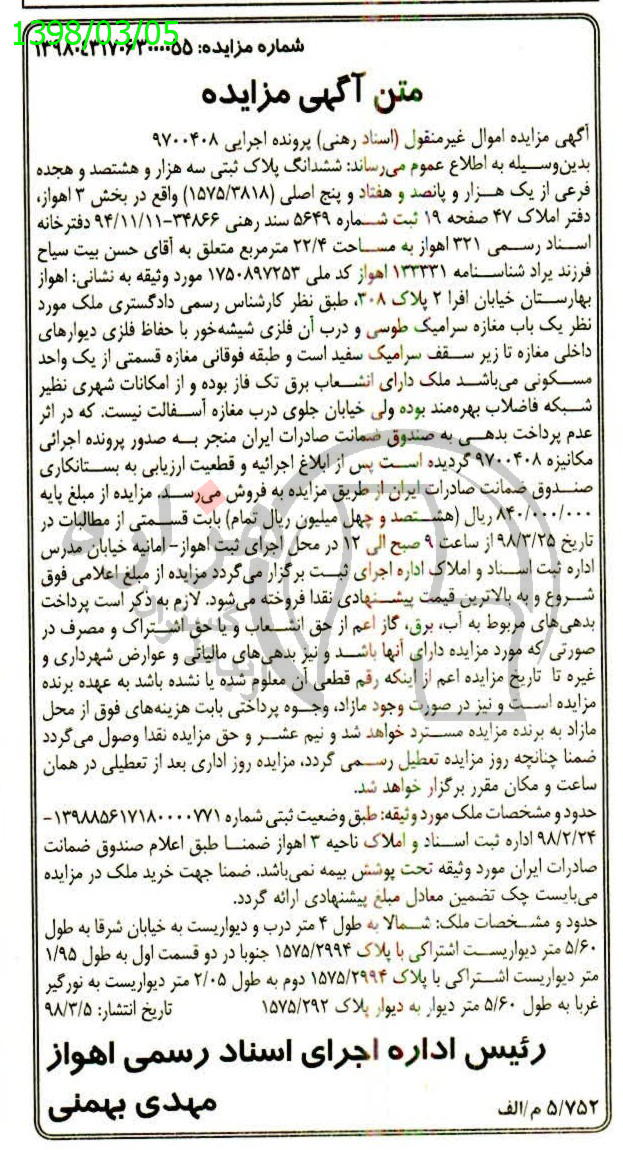 1398/03/05
شماره مزایده: ۱۳۹۸۰۴۳۱۷۰۶۳۰۰۰۰۵۵
متن آگهی مزایده
آگهی مزایده اموال غیرمنقول (اسناد رهنی) پرونده اجرایی ۹۷۰۰۴۰۸
بدین‌وسیله به اطلاع عموم می‌رساند: ششدانگ پلاک ثبتی سه هزار و هشتصد و هجده
فرعی از یک هزار و پانصد و هفتاد و پنج اصلی (۱۵۷۵/۳۸۱۸) واقع در بخش ۳ اهواز،
دفتر املاک ۴۷ صفحه ۱۹ ثبت شماره ۵۶۴۹ سند رهنی ۳۴۸۶۶-۹۴/۱۱/۱۱ دفترخانه
اسناد رسمی ۳۲۱ اهواز به مساحت ۲۲/۴ مترمربع متعلق به آقای حسن بیت سیاح
فرزند یراد شناسنامه ۱۳۳۳۳۱ اهواز کد ملی ۱۷۵۰۸۹۷۲۵۳ مورد وثیقه به نشانی: اهواز
بهارستان خیابان افرا ۲ پلاک ۳۰۸، طبق نظر کارشناس رسمی دادگستری ملک مورد
نظر یک باب مغازه سرامیک طوسی و درب آن فلزی شیشه‌خور با حفاظ فلزی دیوارهای
داخلی مغازه تا زیر سقف سرامیک سفید است و طبقه فوقانی مغازه قسمتی از یک واحد
مسکونی می‌باشد ملک دارای انشعاب برق تک فاز بوده و از امکانات شهری نظیر
شبکه فاضلاب بهره‌مند بوده ولی خیابان جلوی درب مغازه آسفالت نیست. که در اثر
عدم پرداخت بدهی به صندوق ضمانت صادرات ایران منجر به صدور پرونده اجرائی
مکانیزه ۹۷۰۰۴۰۸ گردیده است پس از ابلاغ اجرائیه و قطعیت ارزیابی به بستانکاری
صندوق ضمانت صادرات ایران از طریق مزایده به فروش می‌رسد، مزایده از مبلغ پایه
۸۴۰/۰۰۰/۰۰۰ ریال (هشتصد و چهل میلیون ریال تمام) بابت قسمتی از مطالبات در
تاریخ ۹۸/۳/۲۵ از ساعت ۹ صبح الی ۱۲ در محل اجرای ثبت اهواز- امانیه خیابان مدرس
اداره ثبت اسناد و املاک اداره اجرای ثبت برگزار می‌گردد مزایده از مبلغ اعلامی فوق
شروع و به بالاترین قیمت پیشنهادی نقدا فروخته می‌شود. لازم به ذکر است پرداخت
بدهی‌های مربوط به آب، برق، گاز اعم از حق انشعاب و یا حق اشتراک و مصرف در
صورتی که مورد مزایده دارای آنها باشد و نیز بدهی‌های مالیاتی و عوارض شهرداری و
غیره تا تاریخ مزایده اعم از اینکه رقم قطعی آن معلوم شده یا نشده باشد به عهده برنده
مزایده است و نیز در صورت وجود مازاد، وجوه پرداختی بابت هزینه‌های فوق از محل
مازاد به برنده مزایده مسترد خواهد شد و نیم عشر و حق مزایده نقدا وصول می‌گردد
ضمنا چنانچه روز مزایده تعطیل رسمی گردد، مزایده روز اداری بعد از تعطیلی در همان
ساعت و مکان مقرر برگزار خواهد شد.
حدود و مشخصات ملک مورد وثیقه: طبق وضعیت ثبتی شماره ۱۳۹۸۸۵۶۱۷۱۸۰۰۰۰۷۷۱-
۹۸/۲/۲۴ اداره ثبت اسناد و املاک ناحیه ۳ اهواز ضمنا طبق اعلام صندوق ضمانت
صادرات ایران مورد وثیقه تحت پوشش بیمه نمی‌باشد. ضمنا جهت خرید ملک در مزایده
می‌بایست چک تضمین معادل مبلغ پیشنهادی ارائه گردد.
حدود و مشخصات ملک: شمالا به طول ۴ متر درب و دیواریست به خیابان شرقا به طول
۵/۶۰ متر دیواریست اشتراکی با پلاک ۱۵۷۵/۲۹۹۴ جنوبا در دو قسمت اول به طول ۱/۹۵
متر دیواریست اشتراکی با پلاک ۱۵۷۵/۲۹۹۴ دوم به طول ۲/۰۵ متر دیواریست به نورگیر
غربا به طول ۵/۶۰ متر دیوار به دیوار پلاک ۱۵۷۵/۲۹۲ تاریخ انتشار: ۹۸/۳/۵
رئیس اداره اجرای اسناد رسمی اهواز
مهدی بهمنی
۵/۷۵۲ م/الف